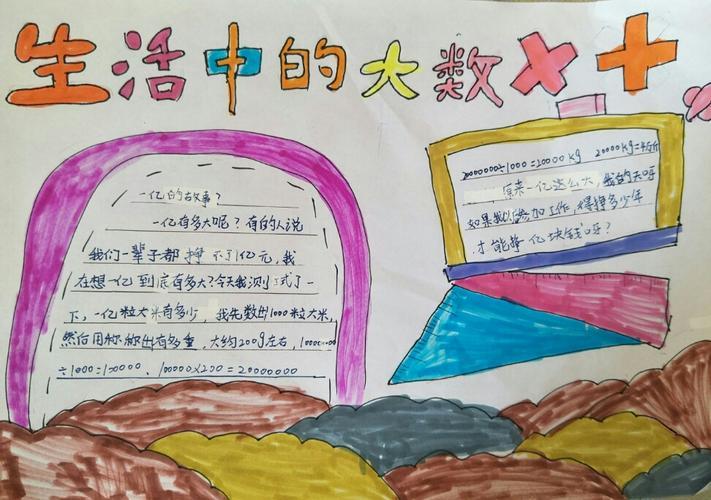 生活中的大数×+
一亿的故事?
一亿有多大呢?有的人说
我们一辈子都挣不了1亿元,我
在想一亿到底有多大?今天我测试了一
下,一亿粒大米有多少,我先数出1000粒大米,
然后用称称出有多重,大约200g左右,
÷1000=100000、100000×200=20000000
20000000÷1000=20000kg 20000kg=4万斤
原来一亿这么大,我的天呀
如果我以参加工作,得挣多少年
才能挣亿块钱呀?